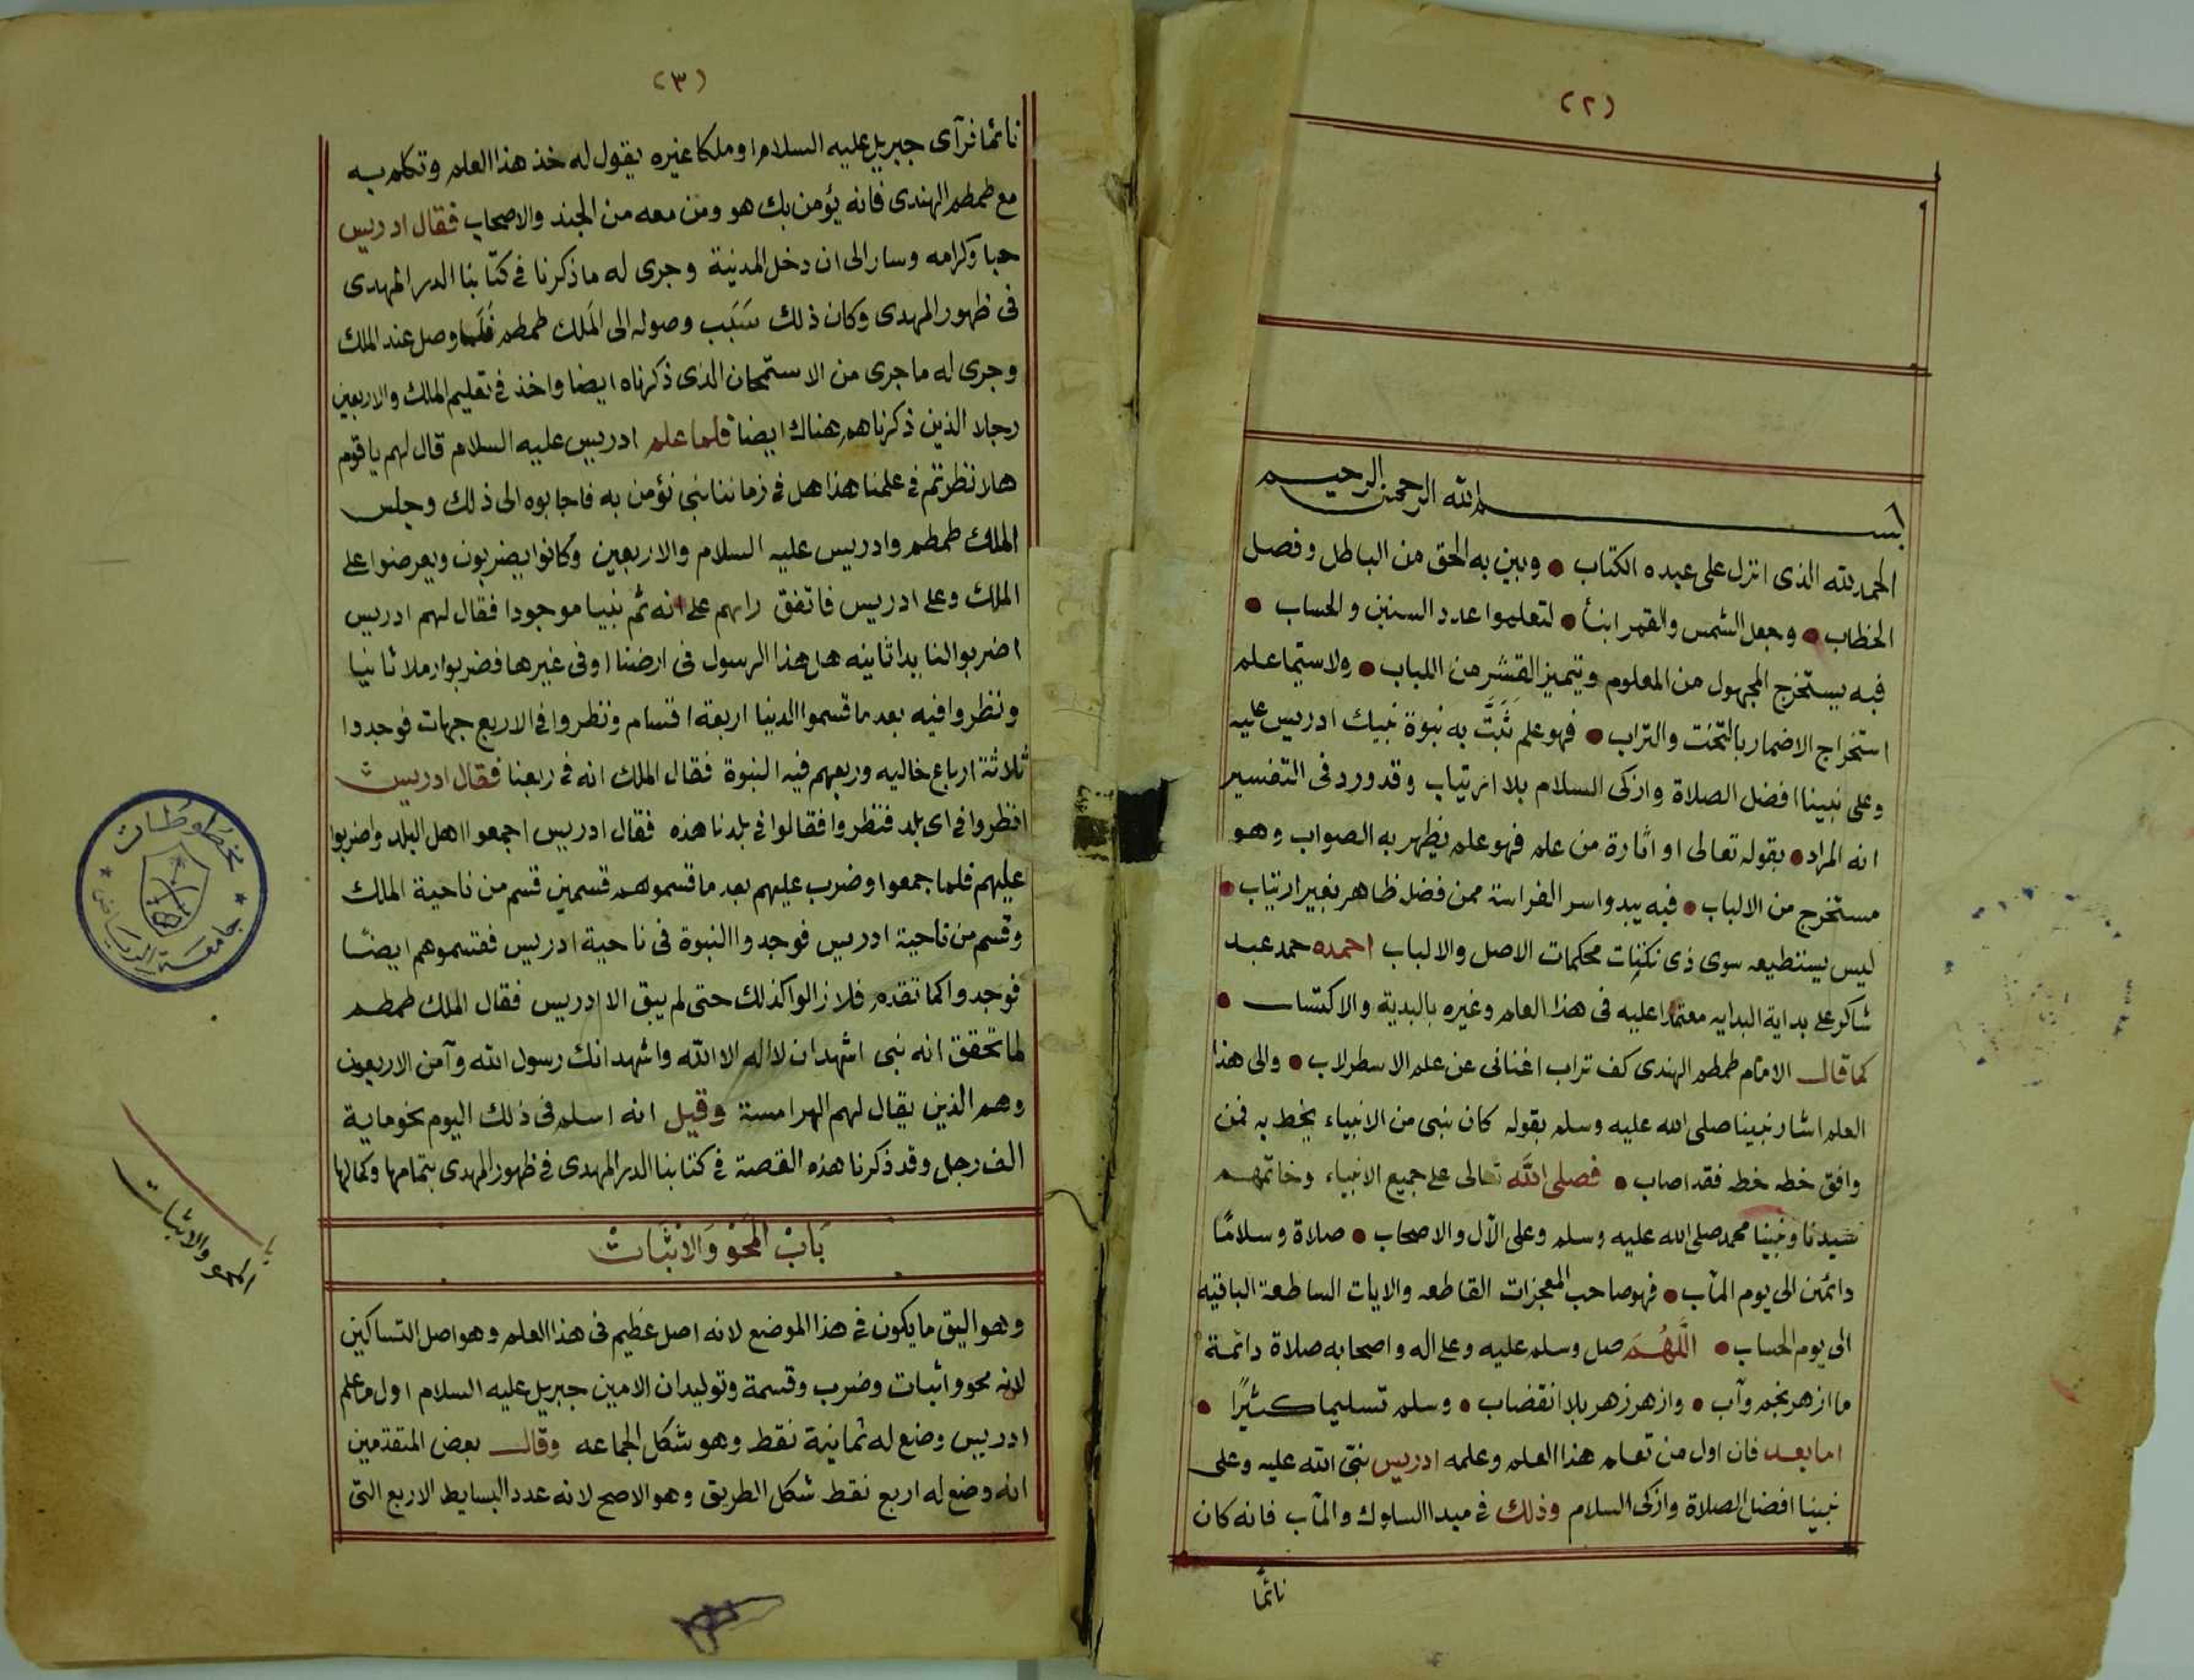 (٢)
بسم الله الرحمن الرحيم
الحمد لله الذى انزل على عبده الكتاب • وبين به الحق من الباطل وفصل
الخطاب • وجعل الشمس والقمر ابنأ • لتعلموا عدد السنين والحساب •
فبه يستخرج المجهول من المعلوم ويتميز القشر من اللباب • ولاستيما علم
استخراج الاضمار بالتخت والتراب • فهو علم ثبتت به نبوة نبيك ادريس عليه
وعلى نبينا افضل الصلاة وازكى السلام بلا ارتياب وقد ورد فى التفسير
انه المراد • بقوله تعالى او اثارة من علم فهو علم يظهر به الصواب وهو
مستخرج من الالباب • فبه يبدوا سر الفراسة ممن فضل ظاهر بغير ارتياب •
ليس يستطيعه سوى ذى محكمات الاصل والالباب احمده حمد عبد
شاكر على بداية البدايه معتمدا عليه فى هذا العلم وغيره بالبدية والاكتساب •
كما قال الامام طمطم الهندى كف تراب اغنانى عن علم الاسطرلاب • والى هذا
العلم اشار نبينا صلى الله عليه وسلم بقوله كان نبى من الانبياء يخط به فمن
وافق خطه خطه فقد اصاب • فصلى الله تعالى على جميع الانبياء وخاتمهم
سيدنا ونبينا محمد صلى الله عليه وسلم وعلى الآل والاصحاب • صلاة وسلامًا
دائمين الى يوم المآب • فهو صاحب المعجزات القاطعه والايات الساطعة الباقيه
الى يوم الحساب • اللهم صل وسلم عليه وعلى اله واصحابه صلاة دائمة
ما ازهر نجم وآب • وازهر زهر بلا انقضاب • وسلم تسليما كثيرًا •
اما بعد فان اول من تعلم هذا العلم وعلمه ادريس نبى الله عليه وعلى
نبينا افضل الصلاة وازكى السلام وذلك فى مبدا السلوك والمآب فانه كان
نائمًا
(٣)
نائما فرآى جبريل عليه السلام او ملكا غيره يقول له خذ هذا العلم وتكلم به
مع طمطم الهندى فانه يؤمن بك هو ومن معه من الجند والاصحاب فقال ادريس
حبا وكرامه وسار الى ان دخل المدنية وجرى له ما ذكرنا فى كتابنا الدر المهدى
فى ظهور المهدى وكان ذلك سَبَب وصوله الى المَلك طمطم فَلَما وصل عند الملك
وجرى له ما جرى من الاستمحان الذى ذكرناه ايضا واخذ فى تعليم الملك والاربعين
رجلا الذين ذكرناهم هناك ايضا فلما علم ادريس عليه السلام قال لهم يا قوم
هلا نظرتم فى علمنا هذا هل فى زماننا نبى نؤمن به فاجابوه الى ذلك وجلس
الملك طمطم وادريس عليه السلام والاربعين وكانوا يضربون ويعرضوا على
الملك وعلى ادريس فاتفق رايهم على انه ثم نبيا موجودا فقال لهم ادريس
اضربوا لنا بدا ثانيه هل هذا الرسول فى ارضنا او فى غيرها فضربوا رملا ثانيا
ونظروا فيه بعد ما قسموا الدنيا اربعة اقسام ونظروا فى الاربع جهات فوجدوا
ثلاثة ارباع خاليه وربعهم فيه النبوة فقال الملك انه فى ربعنا فقال ادريس
انظروا فى اى بلد فنظروا فقالوا فى بلدنا هذه فقال ادريس اجمعوا اهل البلد واضربوا
عليهم فلما جمعوا وضرب عليهم بعد ما قسموهم قسمين قسم من ناحية الملك
وقسم من ناحية ادريس فوجدوا النبوة فى ناحية ادريس فقسموهم ايضًا
فوجدوا كما تقدم فلا زالوا كذلك حتى لم يبق الا ادريس فقال الملك طمطم
لما تحقق انه نبى اشهد ان لا اله الا الله واشهد انك رسول الله وآمن الاربعون
وهم الذين يقال لهم الهرامسة وقيل انه اسلم فى ذلك اليوم نحو ماية
الف رجل وقد ذكرنا هذه القصة فى كتابنا الدر المهدى فى ظهور المهدى بتمامها وكمالها
بَابْ المَحْوْ وَالاثبَاتْ
وهو اليق ما يكون فى هذا الموضع لانه اصل عَظيم فى هذا العلم وهو اصل التساكين
لانه محو واثبات وضرب وقسمة وتوليد ان الامين جبريل عليه السلام اول ما علم
ادريس وضع له ثمانية نقط وهو شكل الجماعه وقال بعض المتقدمين
انه وضع له اربع نقط شكل الطريق وهو الاصح لانه عدد البسايط الاربع التى
باب
المحو والاثبات
مخطوطات
جامعة الرياض